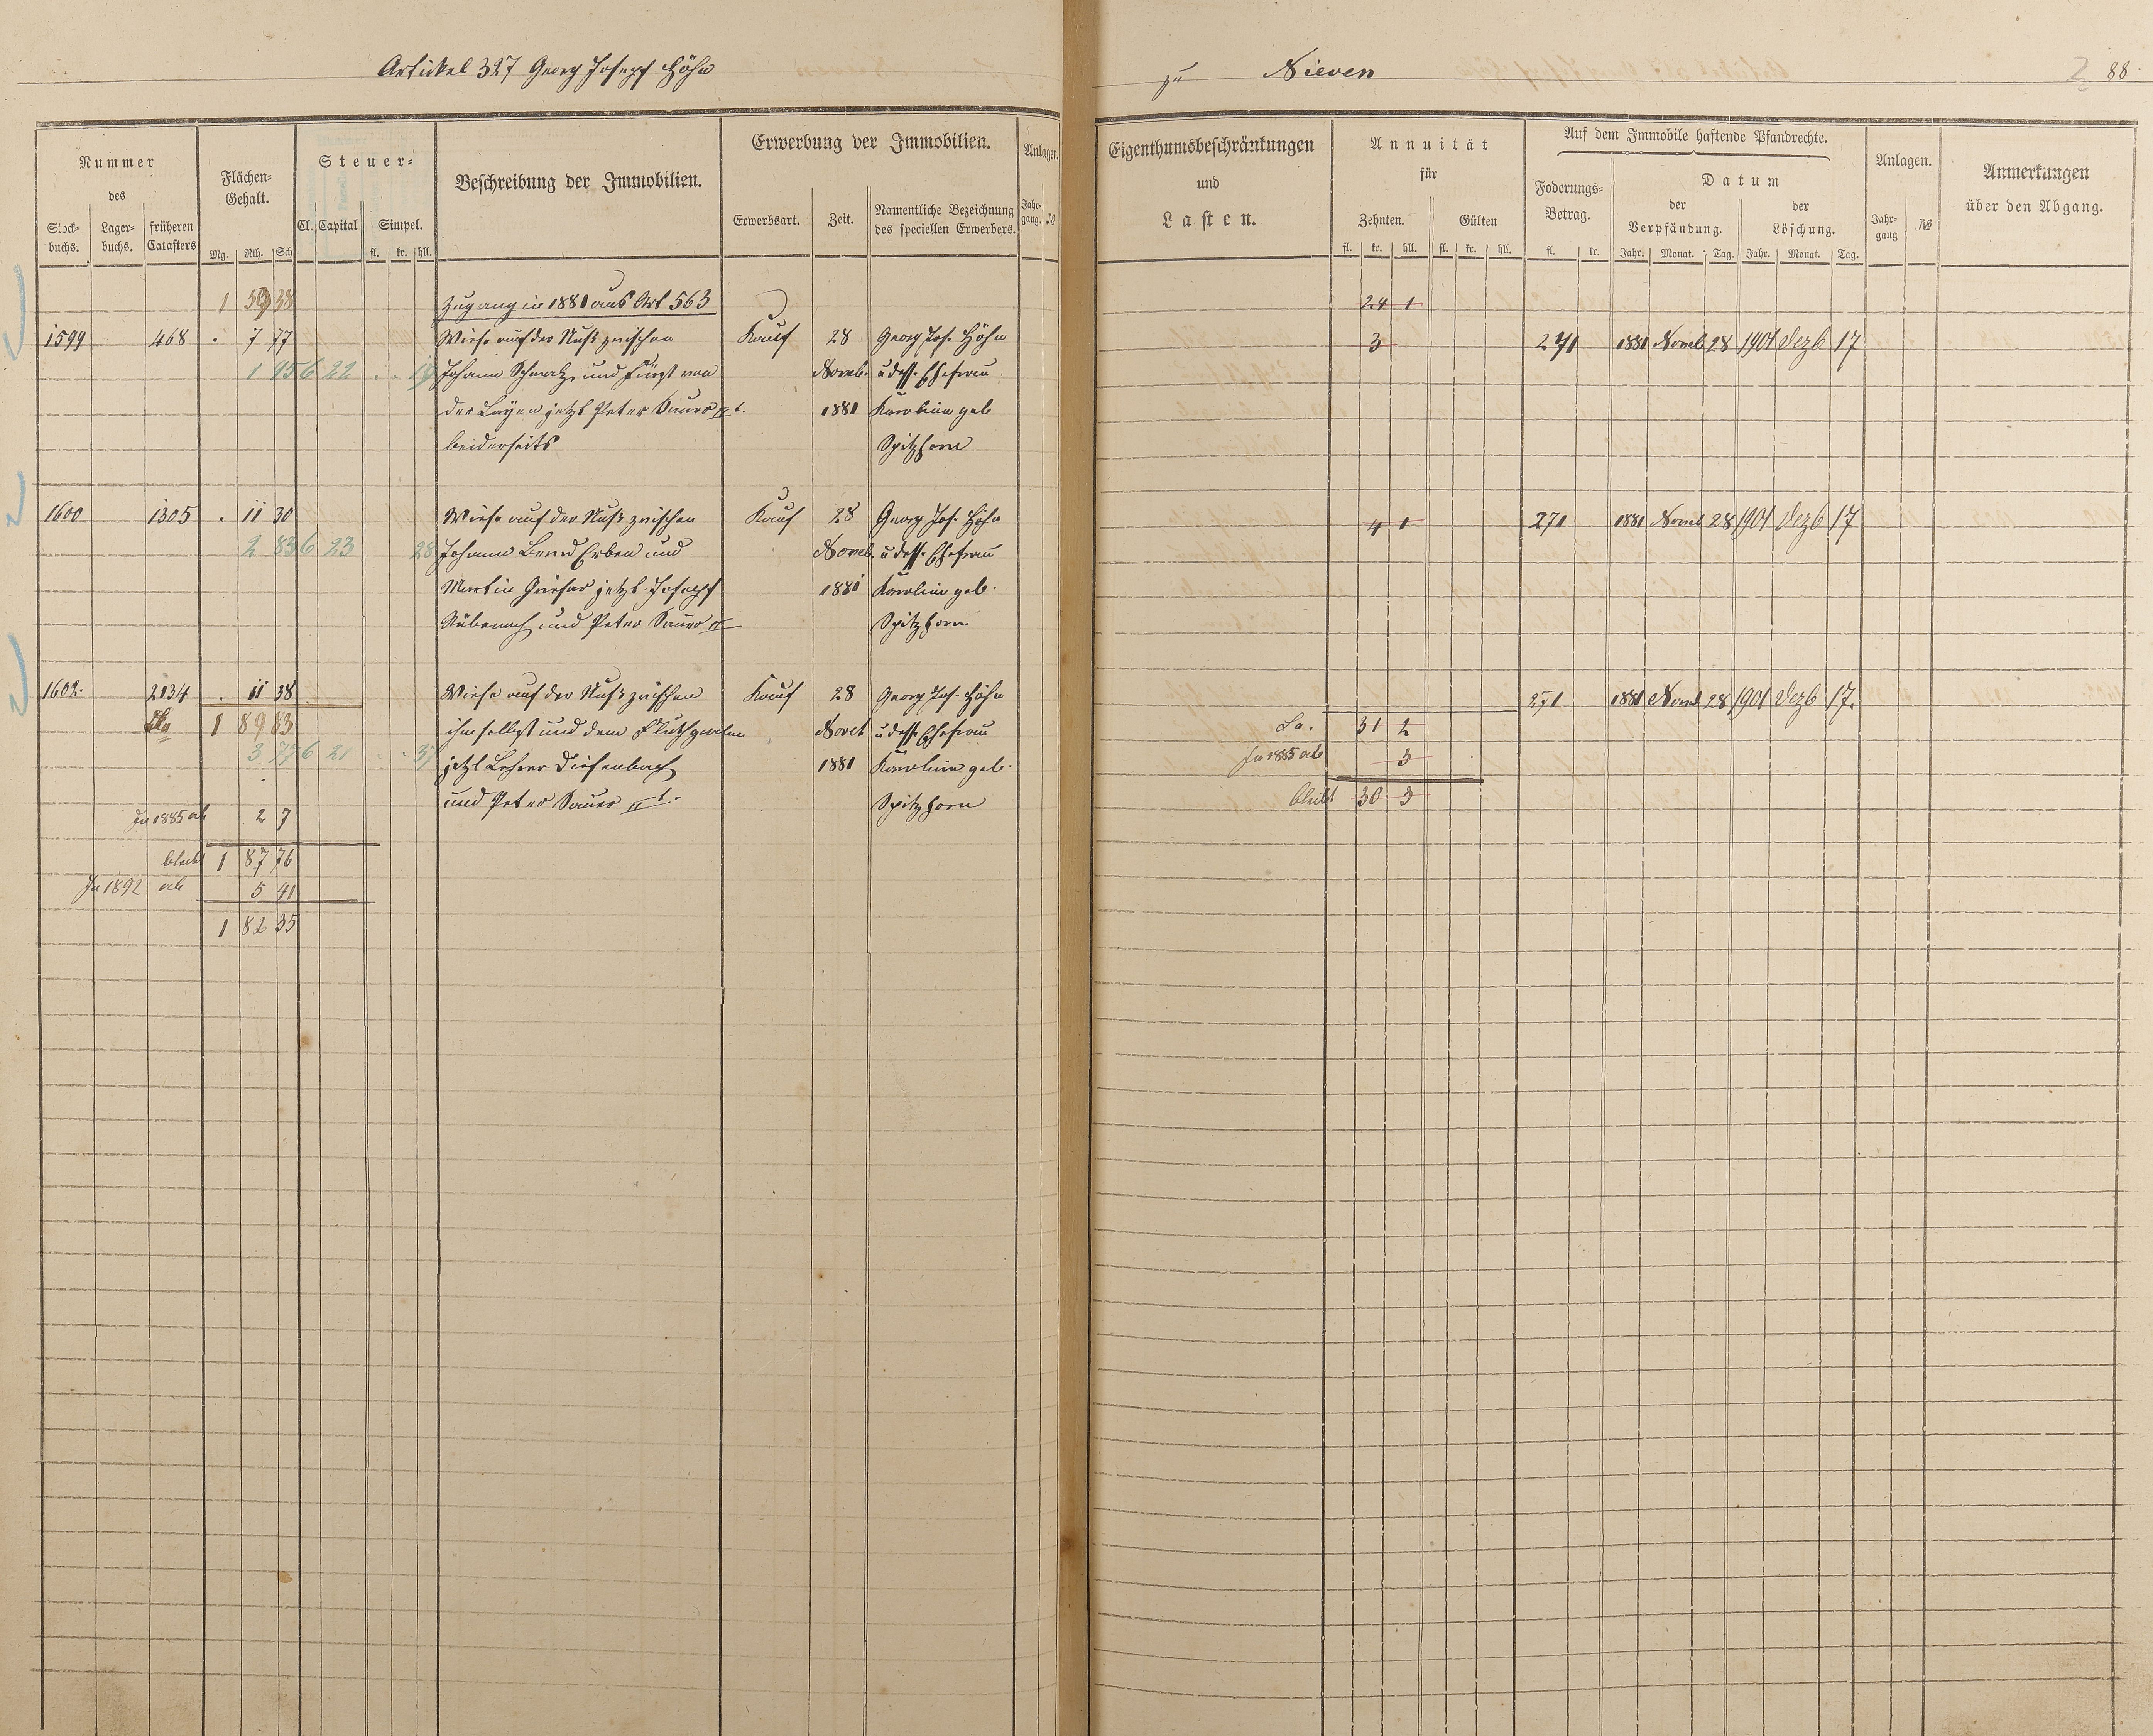 Artickel 327 Georg Joseph Höhn
zu Nieven
88.
Nummer
des
Stock-
buchs.
Lager-
buchs.
früheren
Catasters
Flächen-
Gehalt.
Mg. Rth. Sch
Steuer-
Cl. Capital Simpel.
fl. kr. hll.
Beschreibung der Immobilien.
Erwerbung der Immobilien.
Erwerbsart. Zeit.
Namentliche Bezeichnung
des speciellen Erwerbers.
Anlagen.
Jahr-
gang. №
Eigenthumsbeschränkungen
und
Lasten.
Annuität
für
Zehnten. Gülten
fl. kr. hll. fl. kr. hll.
Auf dem Immobile haftende Pfandrechte.
Foderungs-
Betrag.
fl. kr.
Datum
der
Verpfändung.
der
Löschung.
Jahr. Monat. Tag. Jahr. Monat. Tag.
Anlagen.
Jahr-
gang №
Anmerkungen
über den Abgang.
1 59 38 Zugang in 1881 aus Art 563 24 1
1599 468 . 7 77 Wiese auf der Nuß zwischen Kauf 28 Georg Jos. Höhn 3 271 1881 Novb 28 1901 Dezb 17
1 95 6 22 . . 19 Johann Schmalz und Fürst von Novb. u dess. Ehefrau
der Leyen jetzt Peter Sauer IIt. 1881 Karolina geb
beiderseits Spitzhorn
1600 1305 . 11 30 Wiese auf der Nuß zwischen Kauf 28 Georg Jos. Höhn 4 1 271 1881 Novb 28 1901 Dezb 17
2 83 6 23 28 Johann Erben und Novb. u dess. Ehefrau
Martin jetzt Joseph 1881 Karolina geb.
und Peter Sauer II Spitzhorn
1602. 2134 . 11 38 Wiese auf der Nuß zwischen Kauf 28 Georg Jos. Höhn 271 1881 Novb 28 1901 Dezb 17.
1 89 83 ihm selbst und dem Fluthgraben Novb u dess. Ehefrau La. 31 2
3 77 6 21 . . 37 jetzt Lehrer Diefenbach 1881 Karolina geb. In 1885 ab 3
und Peter Sauer IIt. Spitzhorn bleibt 30 3
In 1885 ab 2 7
bleibt 1 87 76
In 1892 ab 5 41
1 82 35